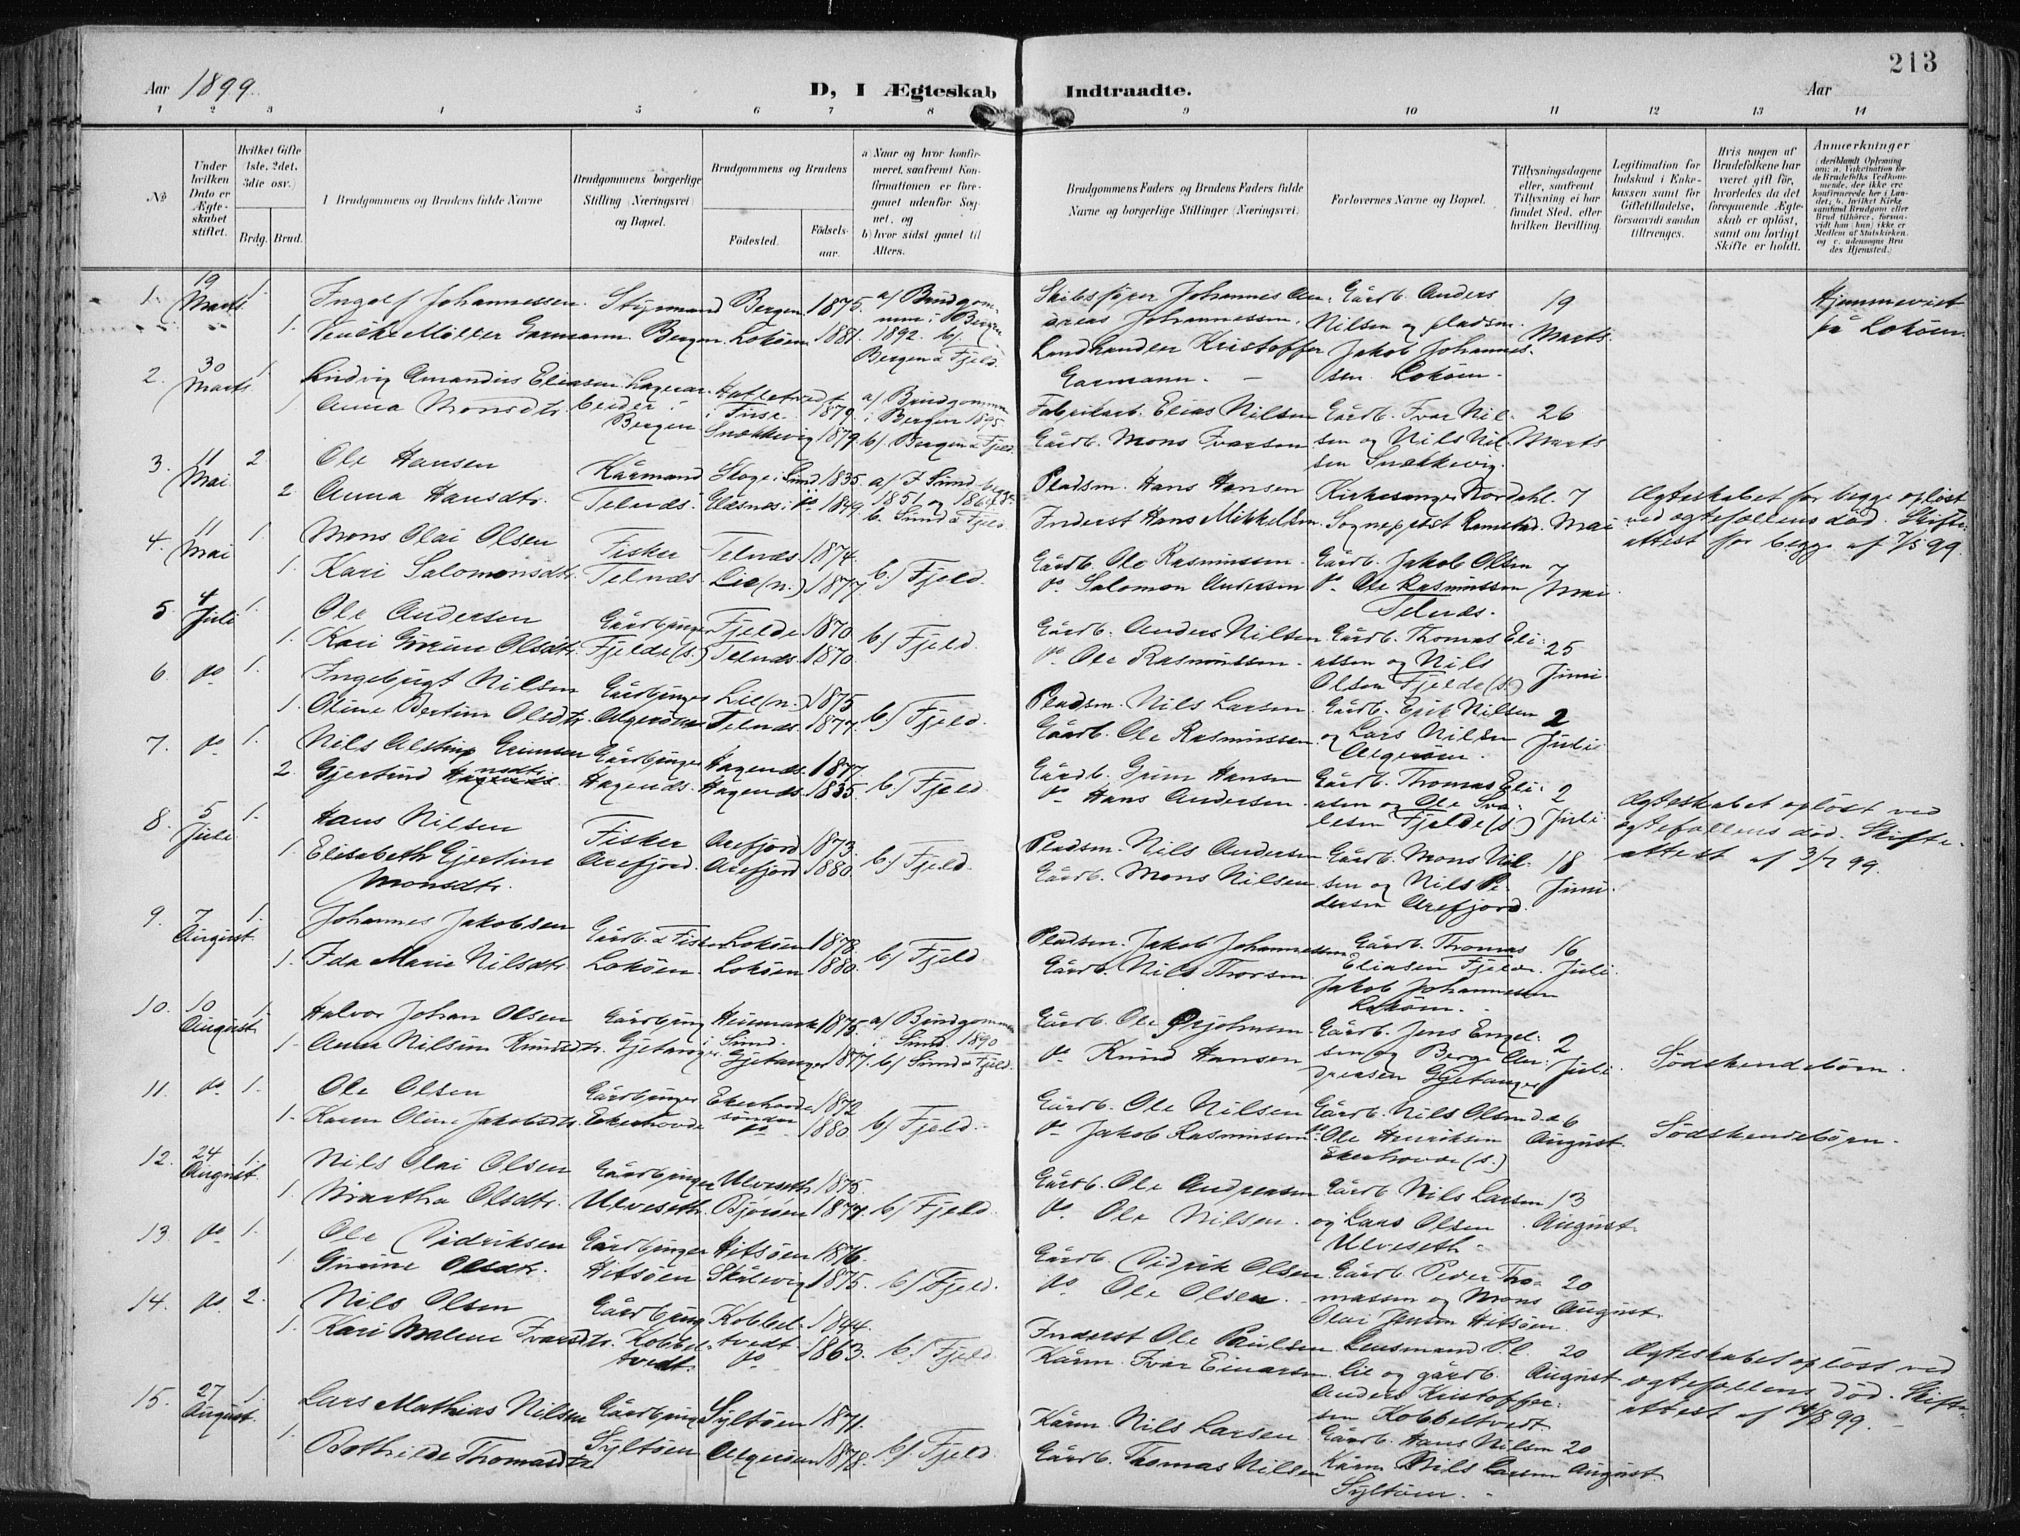 213
Aar 1899.
D, I Ægteskab Indtraadte.
Aar
1 2 3 4 5 6 7 8 9 10 11 12 13 14
№
Under hvilken Dato er Ægteskabet stiftet.
Hvilket Gifte (1ste, 2det, 3die osv.)
Brdg.
Brud.
I Brudgommens og Brudens fulde Navne
Brudgommens borgerlige Stilling (Næringsvei) og Bopæl.
Brudgommens og Brudens
Fødested.
Fødselsaar.
a) Naar og hvor konfirmeret, saafremt Konfirmationen er foregaaet udenfor Sognet, og
b) hvor sidst gaaet til Alters.
Brudgommens Faders og Brudens Faders fulde Navne og borgerlige Stillinger (Næringsvei).
Forlovernes Navne og Bopæl.
Tillysningsdagene eller, saafremt Tillysning ei har fundet Sted, efter hvilken Bevilling.
Legitimation for Indskud i Enkekassen samt for Giftetilladelse, forsaavidt saadan tiltrænges.
Hvis nogen af Brudefolkene har været gift før, hvorledes da det foregaaende Ægteskab er opløst, samt om lovligt Skifte er holdt.
Anmærkninger
1. 19 Marts 1. Ingolf Johannessen. Styrmand Bergen 1875. a/ Brudgommen i Bergen 1892. b/ Bergen & Fjeld.
1. Møller Garmann. Bergen. Lokøen 1881.
Skibsfører Johannes Andreas Johannessen. Landhandler Kristoffer Garmann.
Gårdb. Anders Nilsen og pladsm. Jakob Johannessen Lokøen.
19 Marts.
Hjemmeviet på Lokøen.
2. 30 Marts 1. Ludvig Amandus Eliasen Lagerarbeider i Bergen Hatletvedt i Fuse 1879 a/ Brudgommen i Bergen 1895.
1 Anna Monsdtr. Snekkevig 1879. b/ Bergen & Fjeld
Fabrikarb. Elias Nilsen
Gårdb. Mons Ivarsen
Gårdb. Ivar Nilsen og Nils Nilsen Snekkevig.
26 Marts
3. 11 Mai 2 Ole Hansen Kårmand Skoge i Sund 1835. a/ I Sund begge 1851 og 1864
2 Anna Hansdtr. Telnæs. Glesnes i do 1849. b. Sund & Fjeld.
Pladsm. Hans Hansen
Inderst Hans Mikkelsen
Kirkesanger Nordahl. Sogneprest Ramstad.
7 Mai
Ægteskabet for begge opløst ved ægtefællens død. Skifteattest for begge af 7/5 99.
4. 11 Mai 1. Mons Olai Olsen Fisker Telnæs 1874.
1. Kari Salomonsdtr. Telnæs. Lie (n.) 1877 b/ Fjeld.
Gårdb. Ole Rasmussen.
do. Salomon Andersen
Gårdb. Jakob Olsen do. Ole Rasmussen Telnæs.
7 Mai.
5. 4 Juli 1. Ole Andersen Gårdbruger Fjelde 1870
1. Kari Gurine Olsdtr. Fjelde (s.) Telnæs. 1870. b/ Fjeld.
Gårdb. Anders Nilsen
do. Ole Rasmussen.
Gårdb. Thomas Eliassen og Nils Olsen Fjelde (s.)
25 Juni.
6. do 1. Ingebrigt Nilsen Gårdbruger Lie (n.) 1875
1. Oline Bertine Olsdtr. Algerøen Telnæs. 1877. b/ Fjeld.
Pladsm. Nils Larsen.
Gårdb. Ole Rasmussen.
Gårdb. Erik Nilsen og Lars Nilsen Algerøen.
2 Juli
7. do 1. Nils Grimsen Gårdbruger Hagenæs. 1877.
2. Gjertrud Hansdtr. Hagenæs. Hagenæs. 1835. b/ Fjeld.
Gårdb. Grim Hansen
do Hans Andersen.
Gårdb. Thomas Eliasen og Ole Fjelde (s.)
2 Juli
Ægteskabet opløst ved ægtefællens død. Skifteattest af 3/7 99.
8. 5 Juli. 1. Hans Nilsen Fisker Arefjord 1873.
1. Elisabeth Gjertine Monsdtr. Arefjord. Arefjord 1880. b/ Fjeld.
Pladsm. Nils Andersen
Gårdb. Mons Nilsen
Gårdb. Mons Nilsen og Nils Pedersen Arefjord.
18 Juni.
9. 7 August. 1. Johannes Jakobsen Gårdb. & Fisker Lokøen 1878.
1. Ida Marie Nilsdtr. Lokøen. Lokøen 1880. b/ Fjeld.
Pladsm. Jakob Johannessen
Gårdb. Nils Thorsen
Gårdb. Thomas Eliasen Fjelde. Jakob Johannessen Lokøen.
16 Juli.
10. 10 August 1. Halvor Johan Olsen Gårdbrug. i Gjetanger Heiemark i Sund. 1875. a/ Brudgommen i Sund. 1890
1. Anna Nilsine Knudsdtr. Gjetanger 1877. b/ Sund & Fjeld.
Gårdb. Ole
do Knud Hansen
Gårdb. Jens Engelsen og Berge Andreasen Gjetanger
2 Juli
Sødskendebørn.
11. do 1. Ole Olsen Gårdbruger Ekerhovde søndre 1872
1. Karen Oline Jakobsdtr. Ekerhovde do 1880 b/ Fjeld.
Gårdb. Ole Nilsen
do. Jakob Rasmussen
Gårdb. Nils Olsen do. Ole Henriksen Ekerhovde (s.)
6 August.
Sødskendebørn.
12. 24 August 1. Nils Olai Olsen Gårdbruger Ulveseth 1875
1. Martha Olsdtr. Ulveseth. Bjørøen 1877. b/ Fjeld.
Gårdb. Ole Andreasen
do. Ole Nilsen.
Gårdb. Nils Larsen og Lars Olsen Ulveseth.
13 August.
13. do 1. Ole Didriksen Gårdbruger Hitsøen 1876.
1. Gurine Olsdtr. Hitsøen Skålevig 1875. b/ Fjeld.
Gårdb. Didrik Olsen
do Ole Olsen.
Gårdb. Peder Thomassen og Mons Olai Jensen Hitsøen.
20 August.
14. do 2. Nils Olsen Gårdbrug. Kobbeltvedt 1844.
1. Kari Malene Ivarsdtr. Kobbeltvedt. do 1863. b/ Fjeld.
Inderst Ole Paulsen.
Kårm. Ivar Einarsen
Lensmand P. Lie og gårdb. Anders Kristoffersen Kobbeltvedt.
20 August
Ægteskabet opløst ved ægtefællens død. Skifteattest af 14/8 99.
15. 27 August. 1. Lars Mathias Nilsen Gårdbruger Syltøen 1871.
1. Bothilde Thomasdtr. Syltøen Algerøen 1878. b/ Fjeld.
Kårm. Nils Larsen
Gårdb. Thomas Nilsen
Gårdb. Hans Nilsen Kårm. Nils Larsen Syltøen.
20 August.